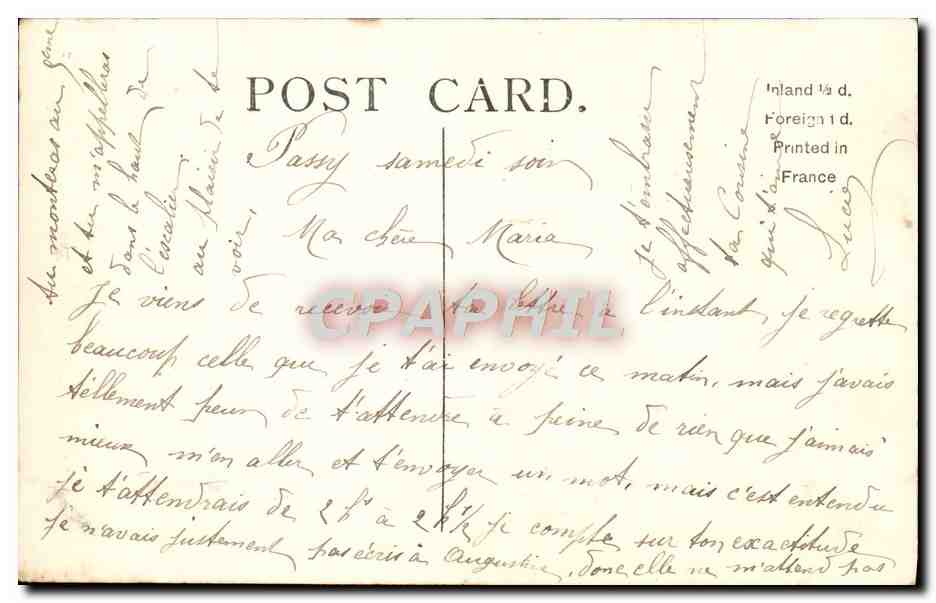 POST CARD.
Inland ½ d.
Foreign 1 d.
Printed in
France
Passy samedi soir
Ma chère Maria
Je viens de recevoir ta lettre à l'instant, je regrette
beaucoup celle que je t'ai envoyé ce matin, mais j'avais
tellement peur de t'attendre à peine de rien que j'aimais
mieux m'en aller et t'envoyer un mot, mais c'est entendu
je t'attendrais de 2 hs à 2 h ½ je compte sur ton exactitude
je n'avais justement pas écris à Augustine, donc elle ne m'attend pas
tu monteras au 3eme
et tu m'appelleras
dans le haut de
l'escalier
au plaisir de te
voir,
je t'embrasse
affectueusement
ta Cousine
qui t'aime
Lucie
CPAPHIL